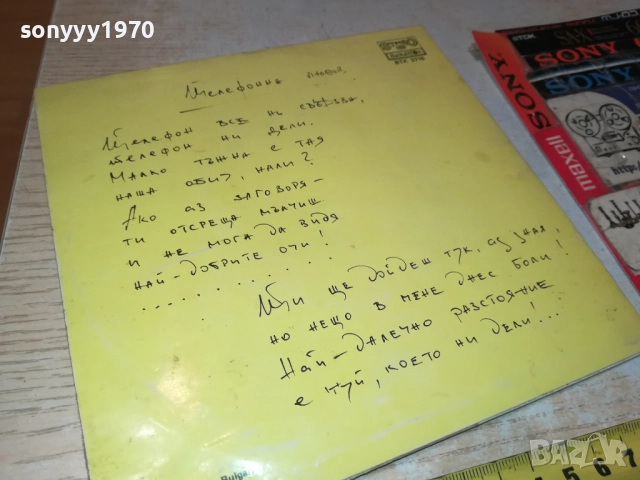 sonyyy1970
Телефонна любов
Телефон все ни свързва,
телефон ни дели.
Малко тъжна е тая
наша обич, нали?
Ако аз заговоря –
ти отсреща мълчиш
и не мога да видя
най-добрите очи!
. . . . . . . . . . . .
Ти ще дойдеш тук, аз зная,
но нещо в мене днес боли!
Най-далечно разстояние
е туй, което ни дели!...
TDK
SONY
SONY
SONY
maxell
BAZAR
5 6 7